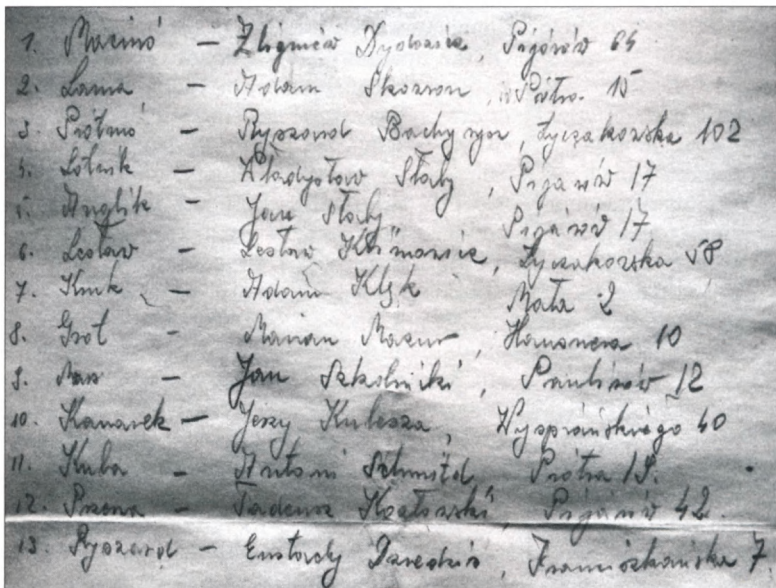 1. – Zbigniew Pijarów 64
2. Lama – Adam Skozron, Piotra 15
3. – Ryszard Łyczakowska 102
4. Lotnik – Władysław Stały, Pijarów 17
5. Anglik – Jan Stały Pijarów 17
6. Lesław – Lesław, Łyczakowska 58
7. Kmk – Adam Kłyk Mała 2
8. Grot – Marian Mazur, Hausnera 10
9. – Jan Szkolnicki, Paulinów 12
10. Kanarek – Jerzy Kulesza, Wyspiańskiego 40
11. Kuba – Antoni Schmidt, Piotra 19.
12. – Tadeusz Kozłowski, Pijarów 42.
13. Ryszard – Eustachy, Franciszkańska 7.